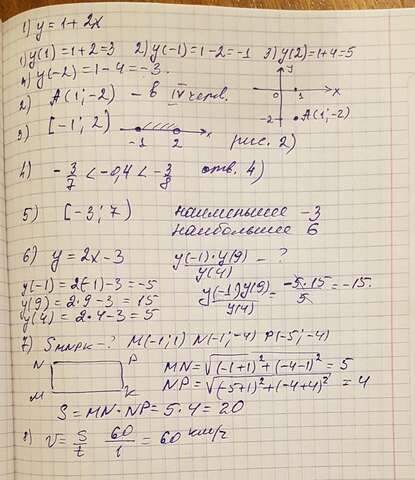 1) y = 1 + 2x
1) y(1) = 1+2 = 3 2) y(-1) = 1-2 = -1 3) y(2) = 1+4 = 5
4) y(-2) = 1-4 = -3.
2) A(1;-2) – в IV четв.
y
x
1
-2
A(1;-2)
3) [-1; 2)
-1 2 x
рис. 2)
4) -3/7 < -0,4 < -3/8 отв. 4)
5) [-3; 7) наименьшее -3
наибольшее 6
6) y = 2x - 3 y(-1)·y(9)/y(4) - ?
y(-1) = 2(-1)-3 = -5
y(9) = 2·9-3 = 15
y(4) = 2·4-3 = 5
y(-1)y(9)/y(4) = -5·15/5 = -15.
7) SMNPK - ? M(-1;1) N(-1;-4) P(-5;-4)
N P
M K
MN = √((-1+1)²+(-4-1)²) = 5
NP = √((-5+1)²+(-4+4)²) = 4
S = MN·NP = 5·4 = 20
8) V = S/t 60/1 = 60 км/ч